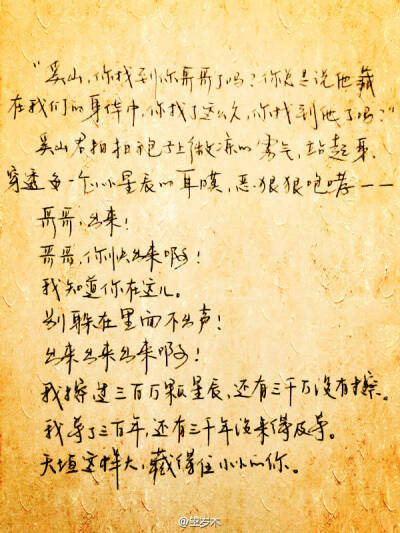 “奚山，你找到你哥哥了吗？你总是说他藏
在我们的身体中，你找了这么久，你找到他了吗？”
奚山君拍拍袍子上微凉的雾气，站起来，
穿透每一个小小星辰的耳膜，恶狠狠咆哮——
哥哥，出来！
哥哥，你快出来啊！
我知道你在这儿。
别躲在里面不出声！
出来出来出来啊！
我擦过三百万颗星辰，还有三千万没有擦。
我寻了三百年，还有三千年没来得及寻。
天垣这样大，藏得住小小的你。
@望岁木